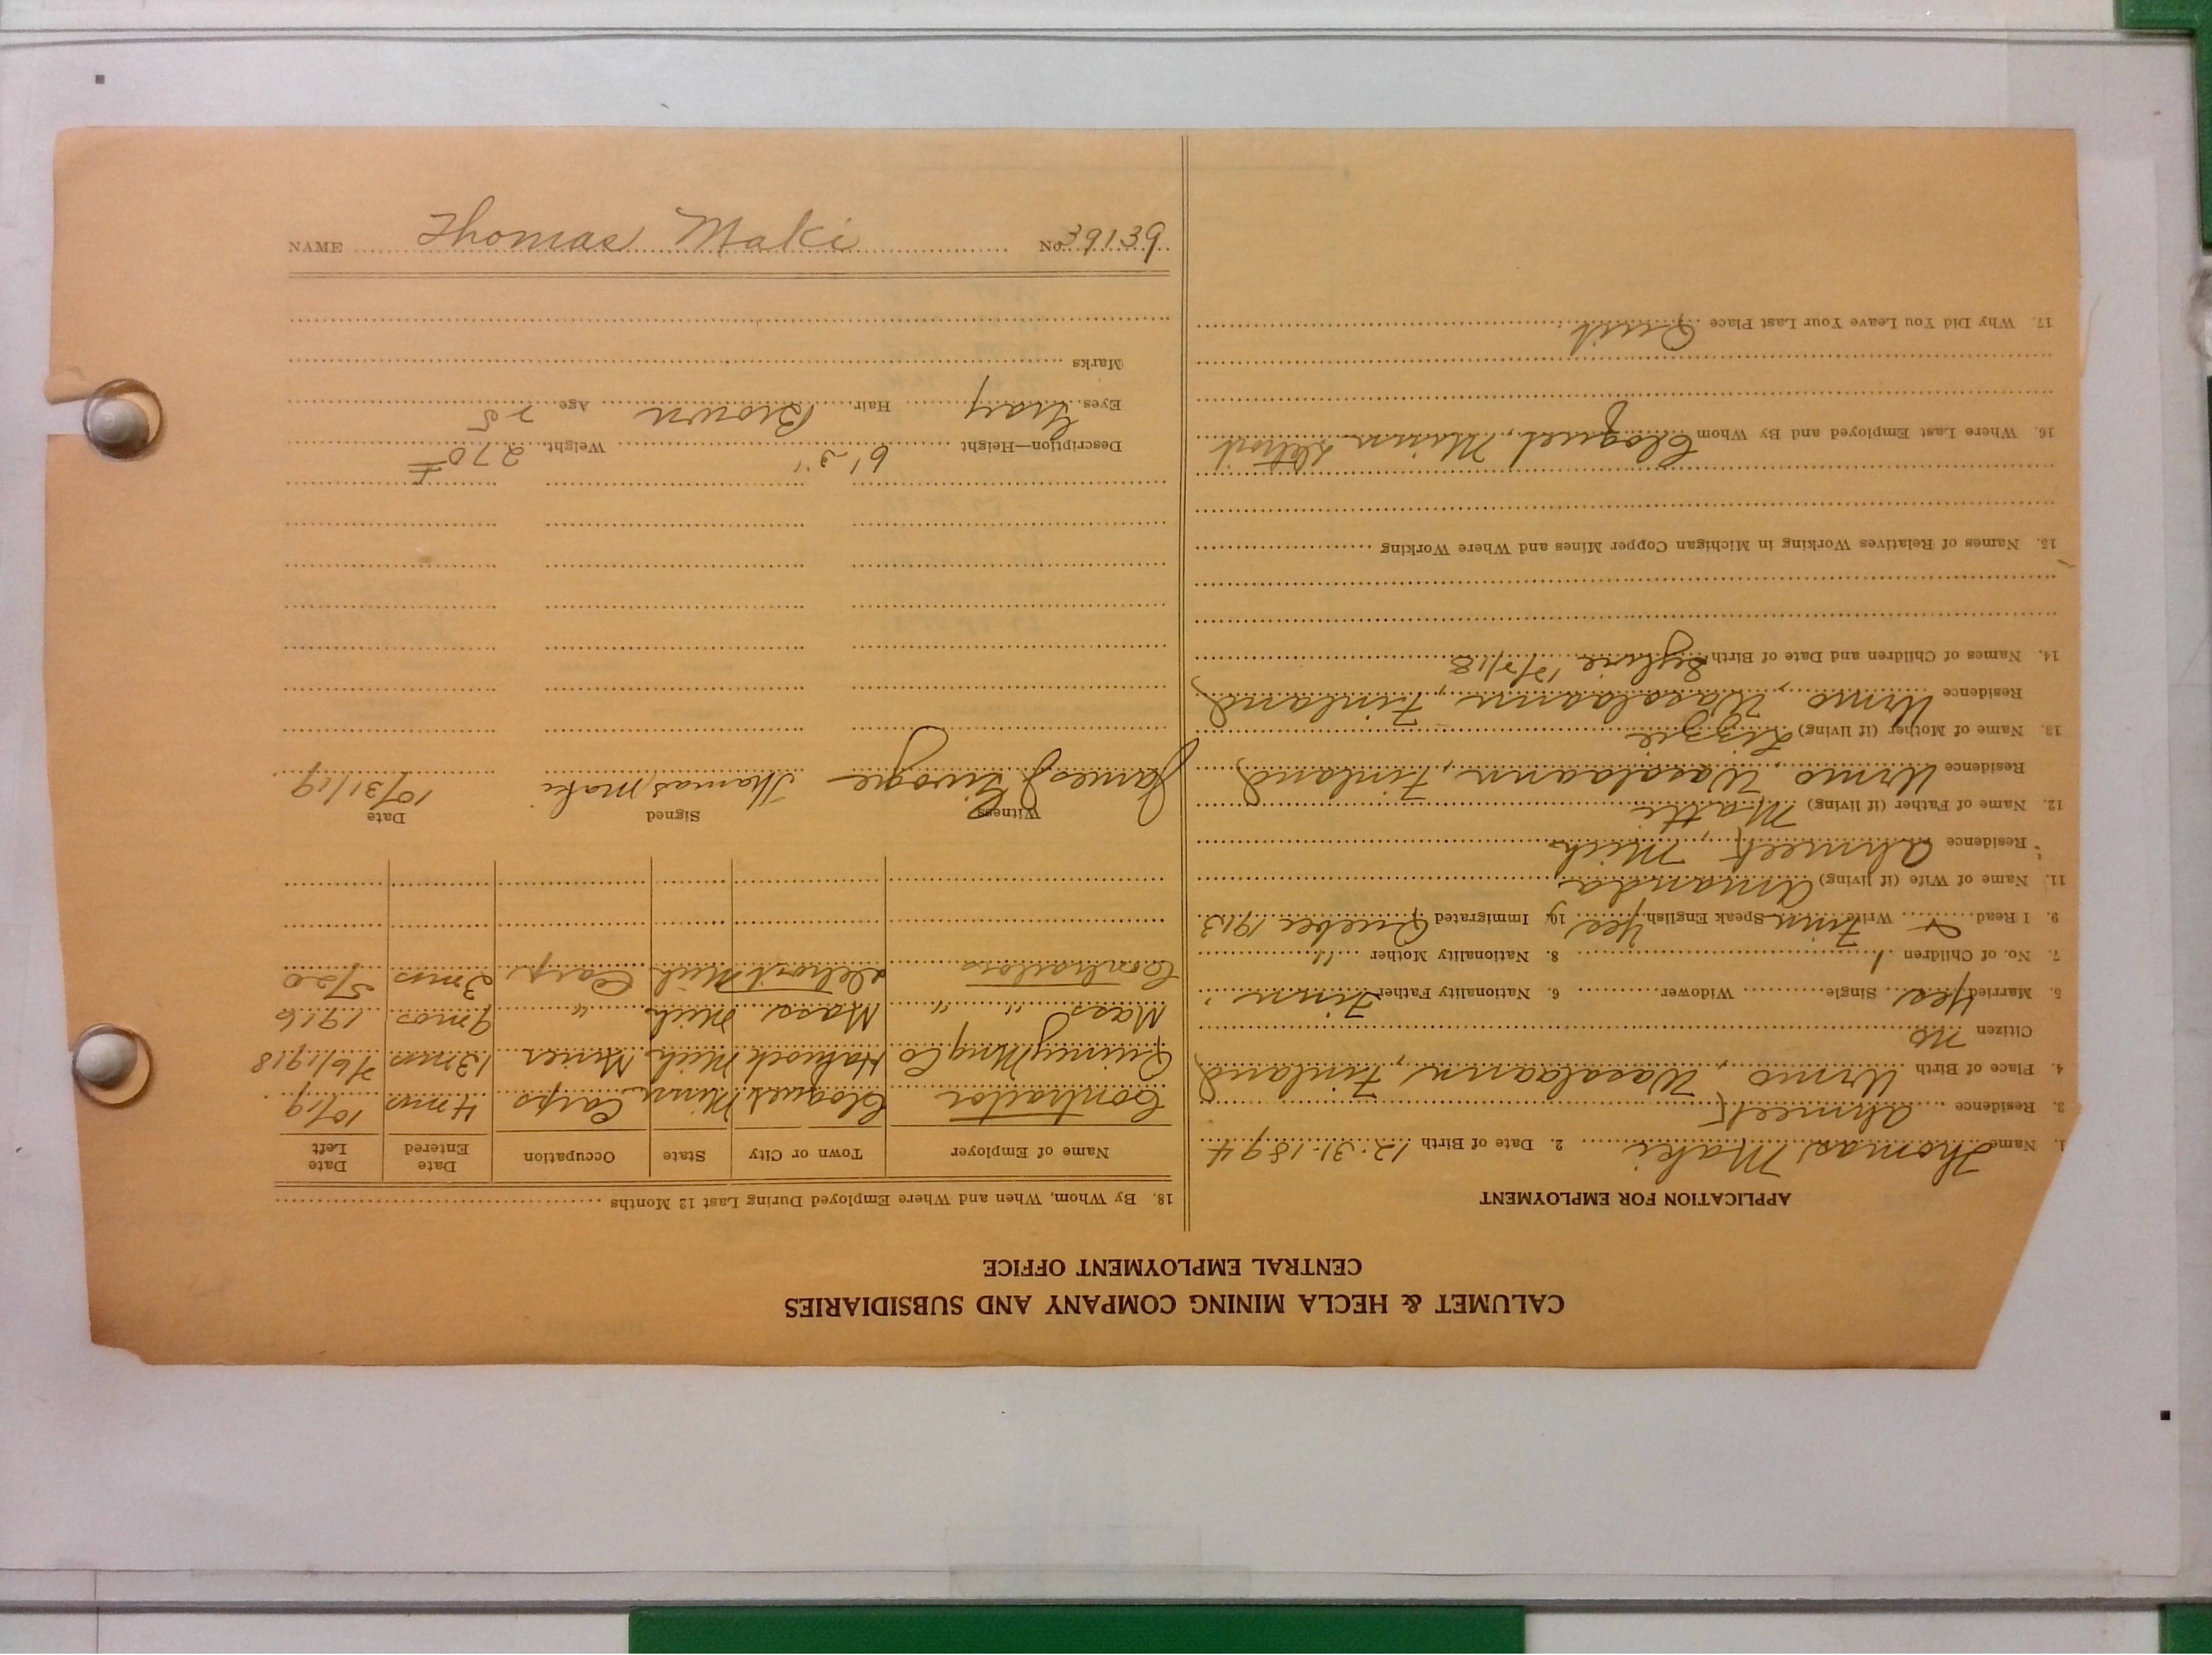 CALUMET & HECLA MINING COMPANY AND SUBSIDIARIES
CENTRAL EMPLOYMENT OFFICE
APPLICATION FOR EMPLOYMENT
1. Name Thomas Maki 2. Date of Birth 12.31.1894
3. Residence Ahmeek
4. Place of Birth Urmo, Wasalaann, Finland
Citizen No
5. Married Yes Single Widower 6. Nationality Father Finn
7. No. of Children 1 8. Nationality Mother "
9. I Read Write Finn Speak English Yes 10. Immigrated Quebec 1913
11. Name of Wife (if living) Amanda
Residence Ahmeek, Mich
12. Name of Father (if living) Matti
Residence Urmo, Wasalaann, Finland
13. Name of Mother (if living) Lizzie
Residence Urmo, Wasalaann, Finland
14. Names of Children and Date of Birth 18
15. Names of Relatives Working in Michigan Copper Mines and Where Working
16. Where Last Employed and By Whom Cloquet, Minn Detroit
17. Why Did You Leave Your Last Place Quit
18. By Whom, When and Where Employed During Last 12 Months
Name of Employer Town or City State Occupation Date Entered Date Left
Contractor Cloquet Minn Carps 4 mos 10/19
Quincy Mng Co Hancock Mich Miner 13 mos 7/6/1918
Mass " " Mass Mich " 9 mos 1916
Contractors Detroit Mich Carps 3 mos 5/20
Witness Signed Date
James J Thomas Maki 10/31/19
Description—Height 6'-3" Weight 270#
Eyes Gray Hair Brown Age 25
Marks
NAME Thomas Maki No. 39139